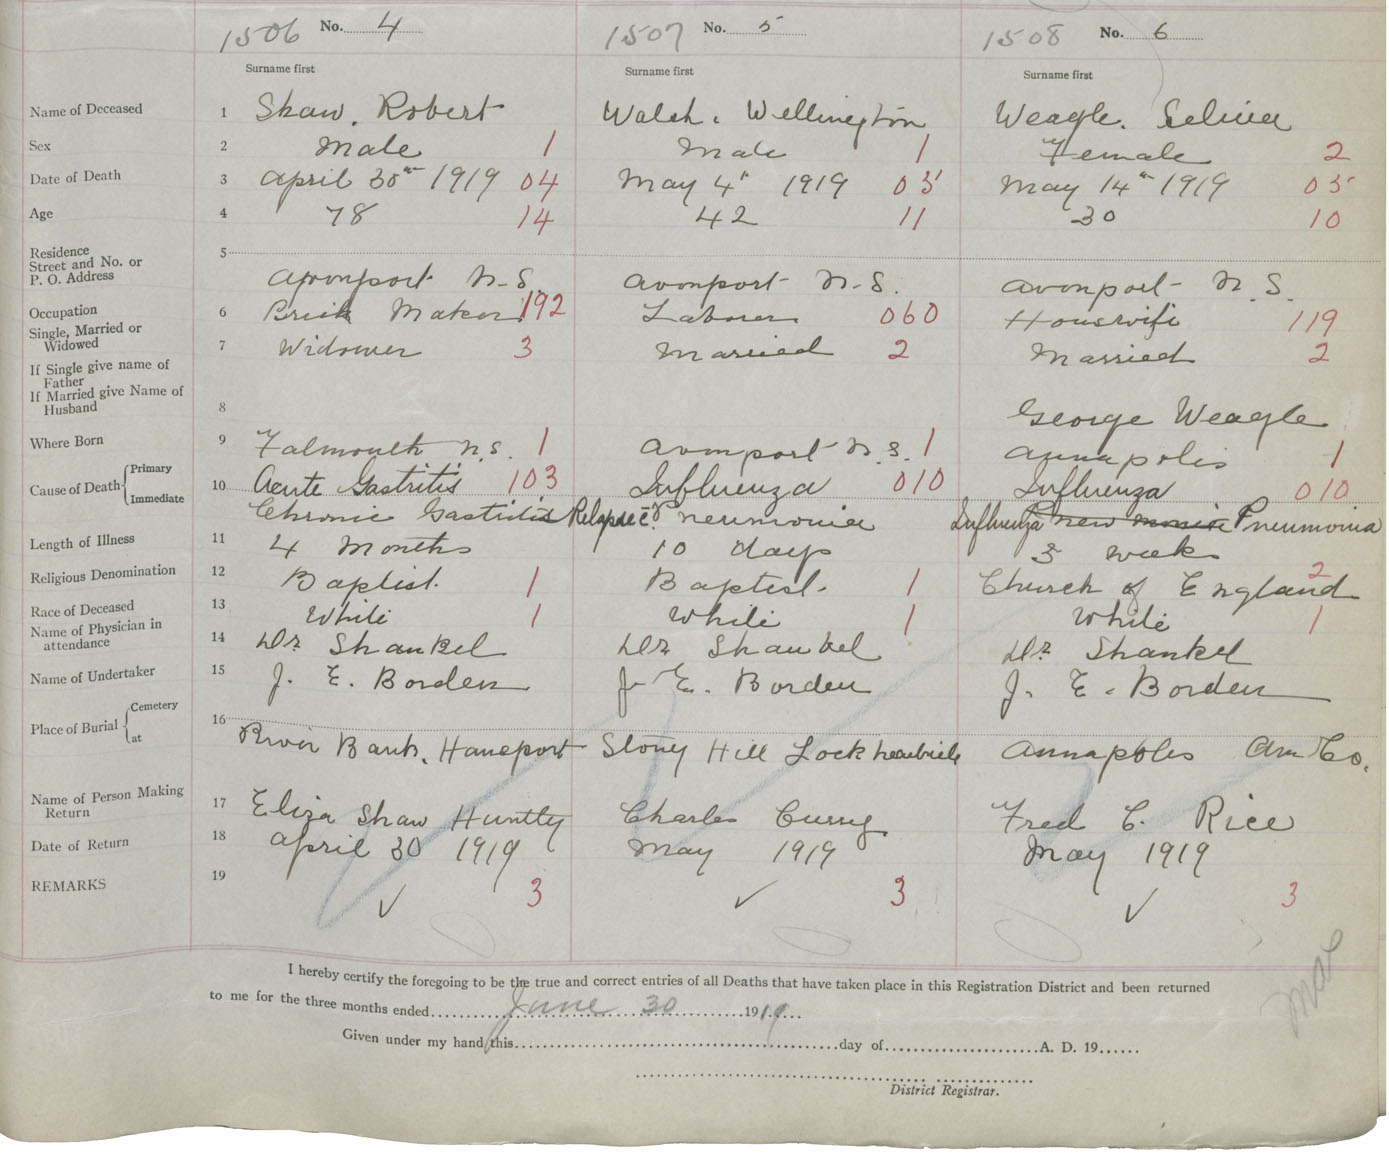 1506 No. 4 1507 No. 5 1508 No. 6
Surname first Surname first Surname first
Name of Deceased 1 Shaw, Robert Walsh, Wellington Weagle.
Sex 2 Male 1 Male 1 Female 2
Date of Death 3 April 30th 1919 04 May 4th 1919 05 May 14th 1919 05
Age 4 78 14 42 11 30 10
Residence
Street and No. or
P. O. Address
5
Avonport N.S. Avonport N.S. Avonport N.S.
Occupation 6 Brick Maker 192 Laborer 060 Housewife 119
Single, Married or
Widowed
7 Widower 3 Married 2 Married 2
If Single give name of
Father
If Married give Name of
Husband
8 George Weagle
Where Born 9 Falmouth N.S. 1 Avonport N.S. 1 Annapolis 1
Cause of Death { Primary
Immediate
10 Acute Gastritis 103 Influenza 010 Influenza 010
Chronic Gastritis Relapse c̄ Pneumonia Influenza Pneumonia
Length of Illness 11 4 Months 10 days 3 weeks
Religious Denomination 12 Baptist 1 Baptist 1 Church of England 2
Race of Deceased 13 White 1 White 1 White 1
Name of Physician in
attendance
14 Dr Shankel Dr Shankel Dr Shankel
Name of Undertaker 15 J. E. Borden J. E. Borden J. E. Borden
Place of Burial { Cemetery
at
16
River Bank, Hantsport Stony Hill Annapolis Ann Co.
Name of Person Making
Return
17 Eliza Shaw Huntly Charles Curry Fred C. Rice
Date of Return 18 April 30 1919 May 1919 May 1919
REMARKS 19 ✓ 3 ✓ 3 ✓ 3
I hereby certify the foregoing to be the true and correct entries of all Deaths that have taken place in this Registration District and been returned
to me for the three months ended June 30 1919
Given under my hand this day of A. D. 19
District Registrar.